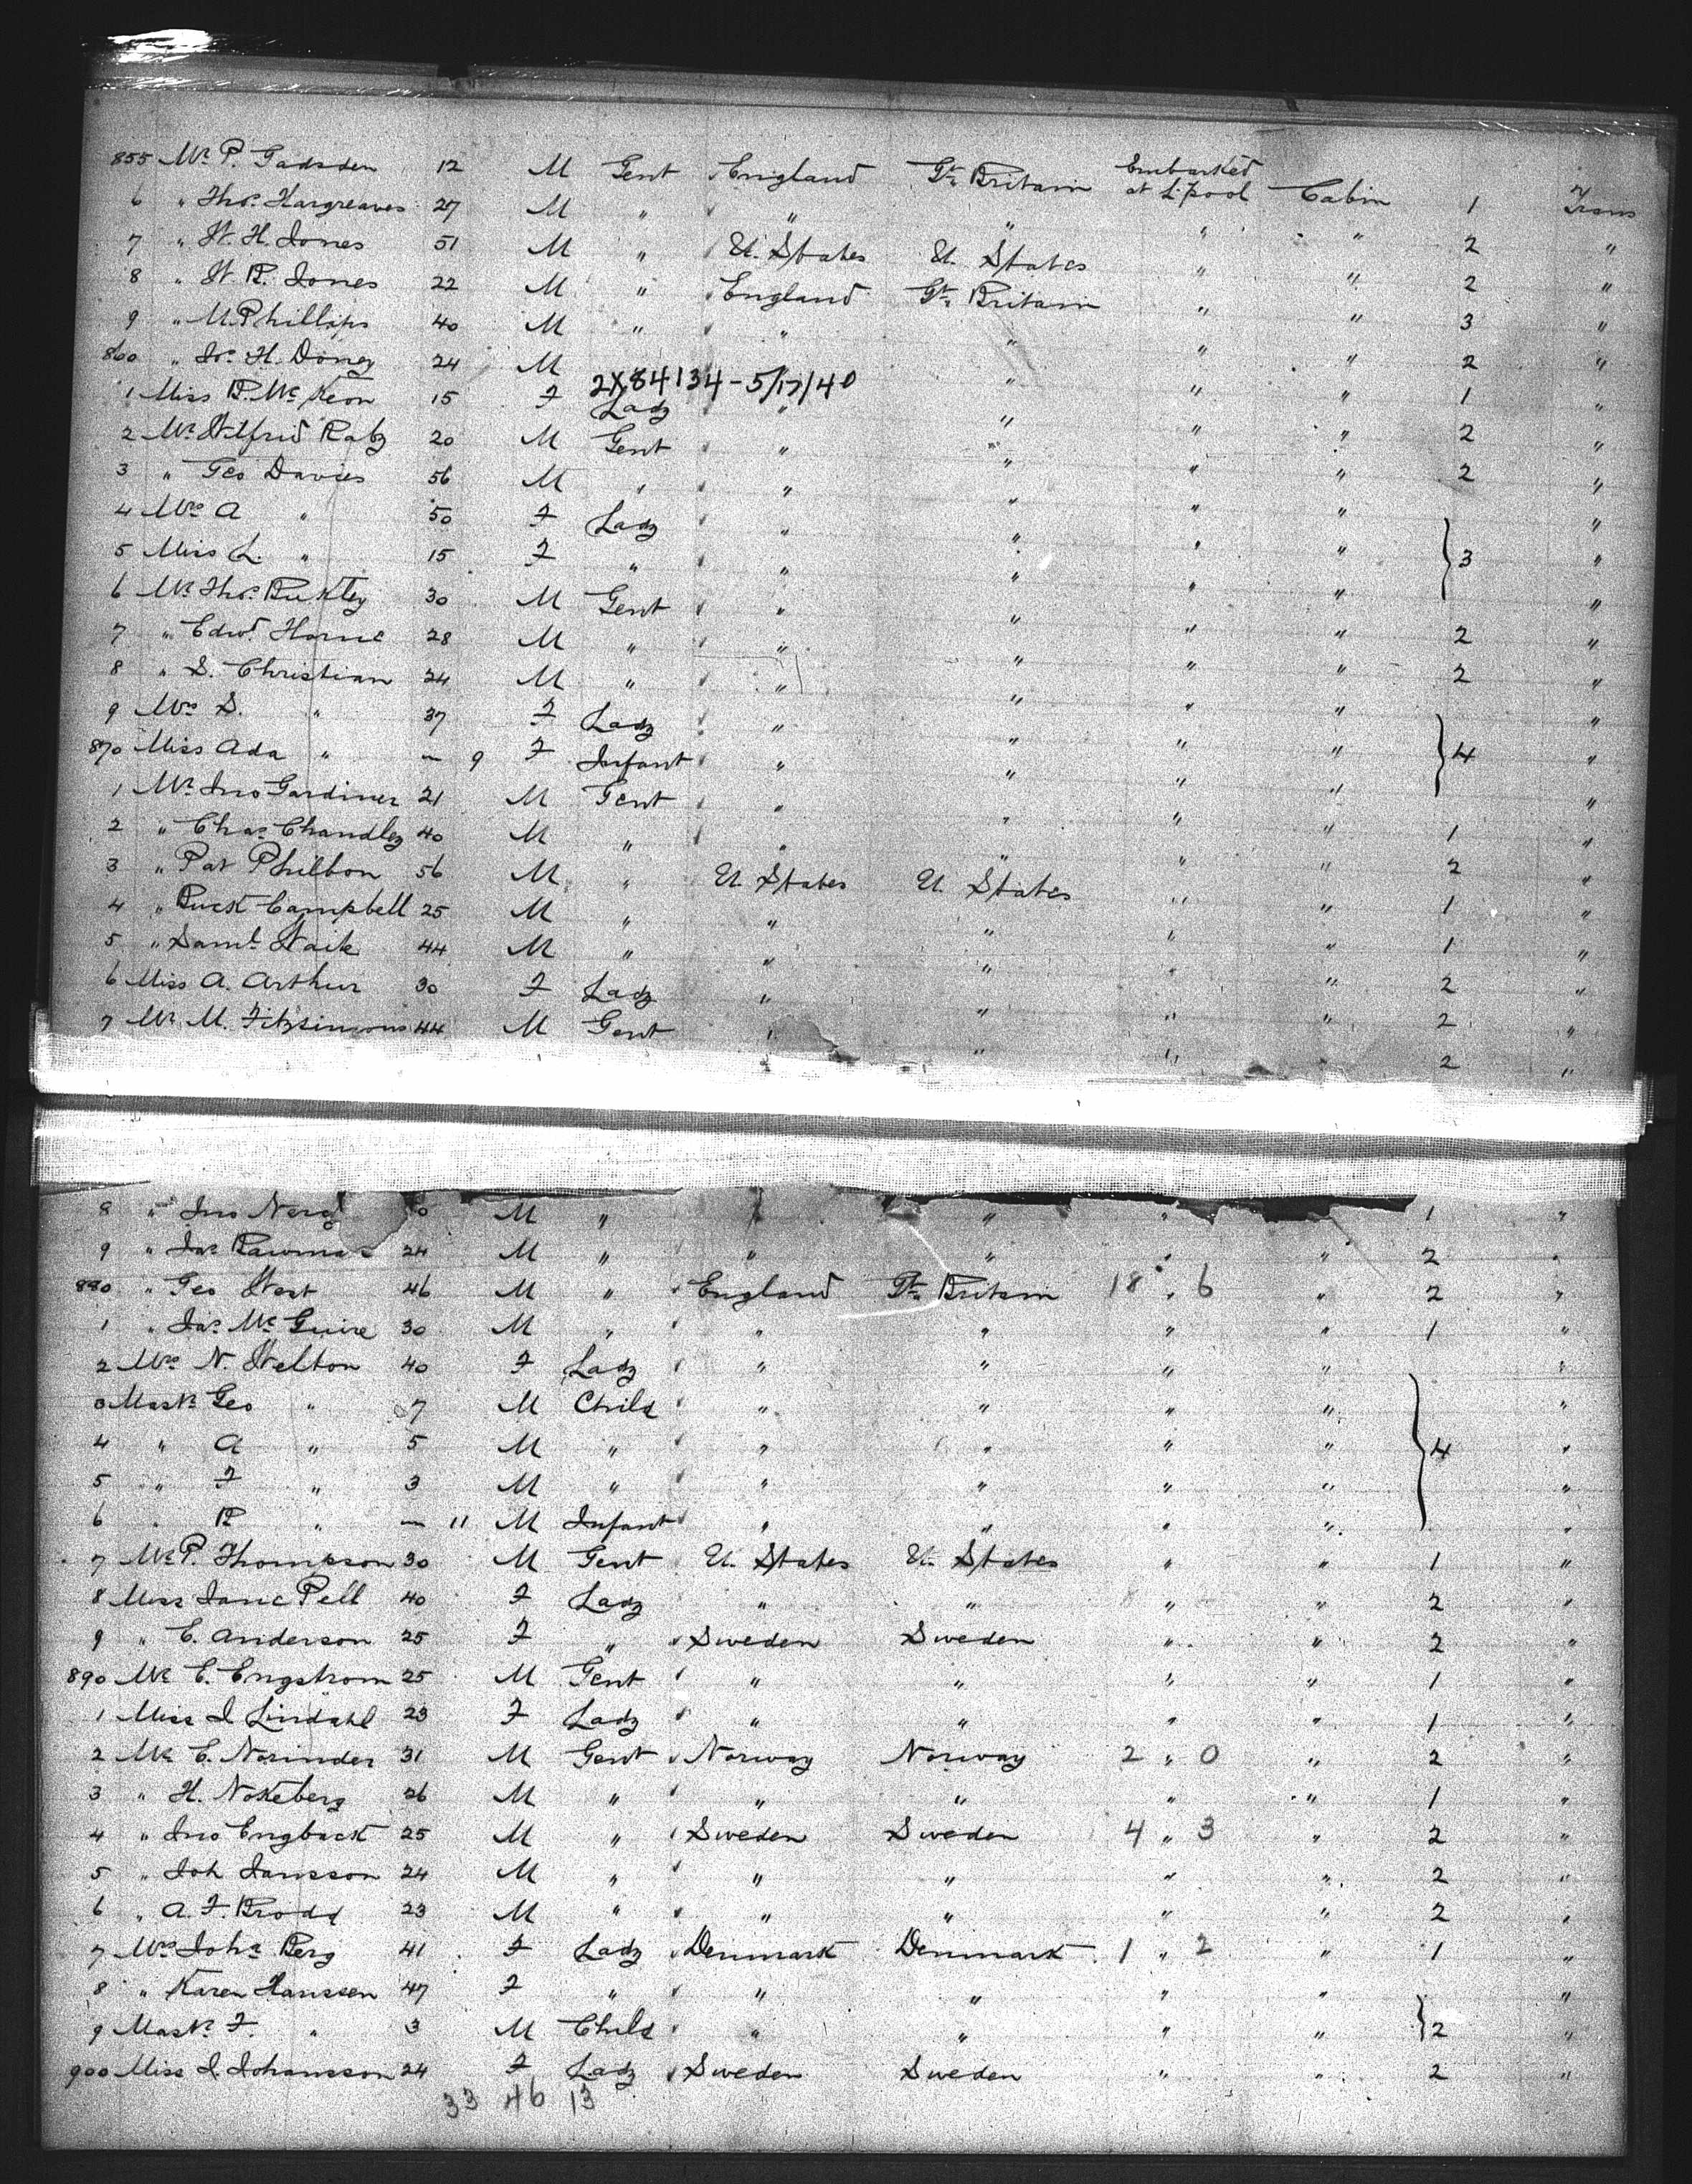 855 Mr. P. Gadsden 12 M Gent England Gt. Britain Embarked at L.pool Cabin 1 Trans
6 " Thos. Hargreaves 27 M " " " " " 2 "
7 " W. H. Jones 51 M " U. States U. States " " 2 "
8 " W. R. Jones 22 M " England Gt. Britain " " 3 "
9 " M. Phillips 40 M " " " " " 2 "
860 " H. 24 M " " " 1 "
2X84134 - 5/17/40
1 Miss R. McKeon 15 F Lady " " " " 2 "
2 Mr. Wilfrid 20 M Gent " " " " 2 "
3 " Geo Davies 56 M " " " " " "
4 Mrs. A " 50 F Lady " " " " } 3 "
5 Miss L. " 15 F " " " " " "
6 Mr. Thos. 30 M Gent " " " " 2 "
7 " Edwd. Horne 28 M " " " " " 2 "
8 " S. Christian 24 M " " " " " "
9 Mrs. S. " 37 F Lady " " " " } 4 "
870 Miss Ada " — 9 F Infant " " " " "
1 Mr. Jno Gardiner 21 M Gent " " " " 1 "
2 " Chas. Chandley 40 M " " " " " 2 "
3 " Pat Philbon 56 M " U. States U. States " " 1 "
4 " Campbell 25 M " " " " " 1 "
5 " Saml. 44 M " " " " " 2 "
6 Miss A. Arthur 30 F Lady " " " " 2 "
7 Mr. M. Fitzsimmons 44 M Gent " " " 2 "
8 " Jno M " " " 1 "
9 " Jas. 24 M " " " " " 2 "
880 " Geo West 46 M " England Gt. Britain 18 " 6 " 2 "
1 " Jas. McGuire 30 M " " " " " 1 "
2 Mrs. N. Welbon 40 F Lady " " " " "
3 Mastr. Geo " 7 M Child " " " " } 4 "
4 " A " 5 M " " " " " "
5 " F " 3 M " " " " " "
6 " R " — 11 M Infant " " " " "
7 Mr. P. Thompson 30 M Gent U. States U. States " " 1 "
8 Miss Jane Pell 40 F Lady " " " " 2 "
9 " E. Anderson 25 F " Sweden Sweden " " 2 "
890 Mr. E. Engstrom 25 M Gent " " " " 1 "
1 Miss I Lindahl 23 F Lady " " " " 1 "
2 Mr. E. Norinder 31 M Gent Norway Norway 2 " 0 " 2 "
3 " H. Nokeberg 26 M " " " " " 1 "
4 " Jno Engback 25 M " Sweden Sweden 4 " 3 " 2 "
5 " Joh Jansson 24 M " " " " " 2 "
6 " A. F. Brodd 23 M " " " " " 2 "
7 Mrs. Joha. Berg 41 F Lady Denmark Denmark 1 " 2 " 1 "
8 " Karen Hanssen 47 F " " " " " "
9 Mastr. F. " 3 M Child " " " " } 2 "
900 Miss I. Johansson 24 F Lady Sweden Sweden " " 2 "
33 46 13